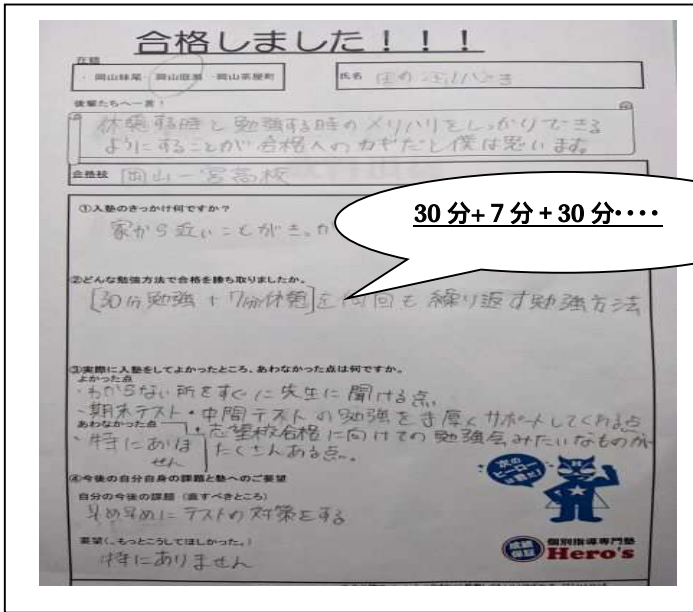 合格しました！！！
在籍
・岡山妹尾・岡山庭瀬・岡山茶屋町
氏名
後輩たちへ一言！
休憩する時と勉強する時のメリハリをしっかりできる
ようにすることが合格へのカギだと僕は思います。
合格校 岡山一宮高校
①入塾のきっかけ何ですか？
家から近いことがきっか
30分+7分+30分････
②どんな勉強方法で合格を勝ち取りましたか。
[30分勉強+7分休憩]を何回も繰り返す勉強方法
③実際に入塾をしてよかったところ、あわなかった点は何ですか。
よかった点
・わからない所をすぐに先生に聞ける点。
・期末テスト・中間テストの勉強を手厚くサポートしてくれる点
・志望校合格に向けての勉強会みたいなものが
たくさんある点。
あわなかった点
・特にありま
せん
④今後の自分自身の課題と塾へのご要望
自分の今後の課題（直すべきところ）
早め早めにテストの対策をする
要望（もっとこうしてほしかった。）
特にありません
次の
ヒーローは
君だ！
成績
保証
個別指導専門塾
Hero's